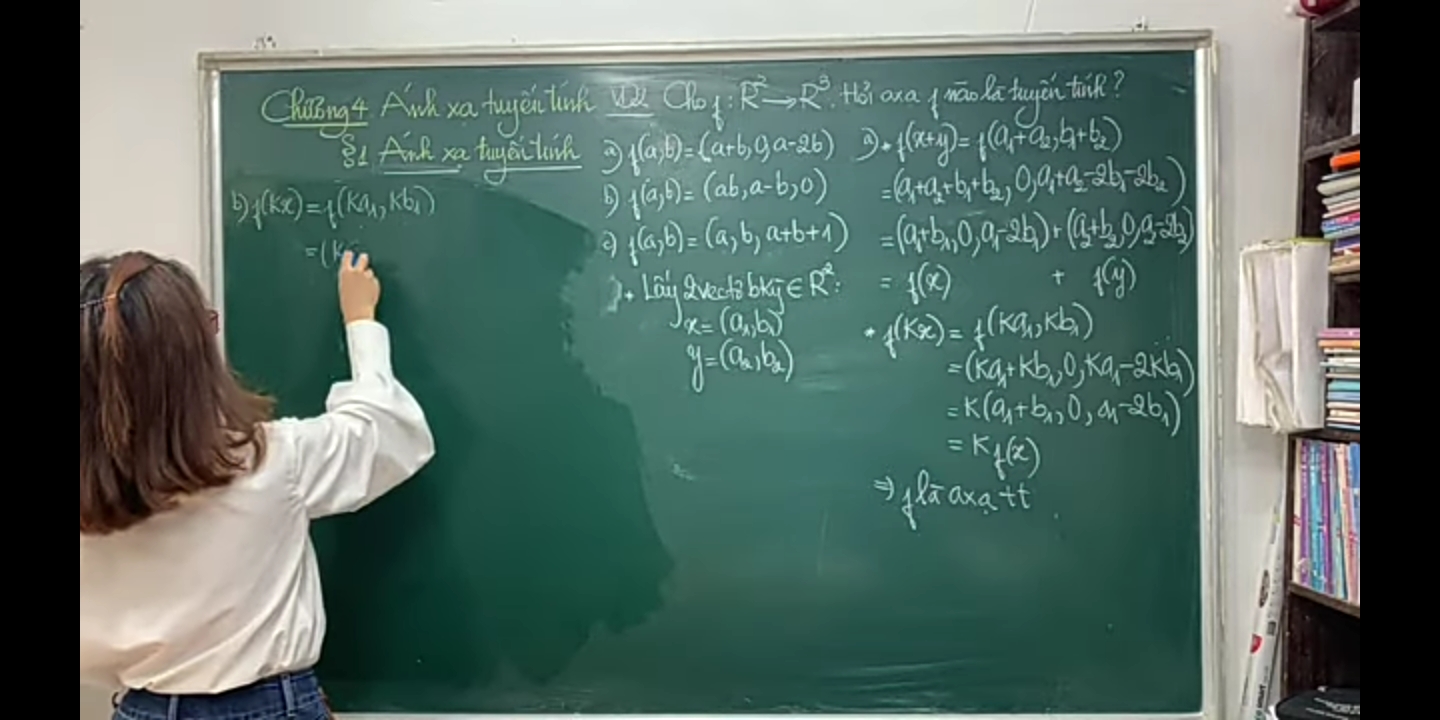 Chương 4 Ánh xạ tuyến tính
§1 Ánh xạ tuyến tính
b) f(kx) = f(ka₁, kb₁)
= (k
VD2 Cho f: R² → R³. Hỏi axạ f nào là tuyến tính?
a) f(a,b) = (a+b, 0, a-2b)
b) f(a,b) = (ab, a-b, 0)
c) f(a,b) = (a, b, a+b+1)
+ Lấy 2 vectơ bkỳ ∈ R²:
x = (a₁, b₁)
y = (a₂, b₂)
a) * f(x+y) = f(a₁+a₂, b₁+b₂)
= (a₁+a₂+b₁+b₂, 0, a₁+a₂-2b₁-2b₂)
= (a₁+b₁, 0, a₁-2b₁) + (a₂+b₂, 0, a₂-2b₂)
= f(x) + f(y)
* f(kx) = f(ka₁, kb₁)
= (ka₁+kb₁, 0, ka₁-2kb₁)
= k(a₁+b₁, 0, a₁-2b₁)
= k f(x)
⇒ f là axạ tt